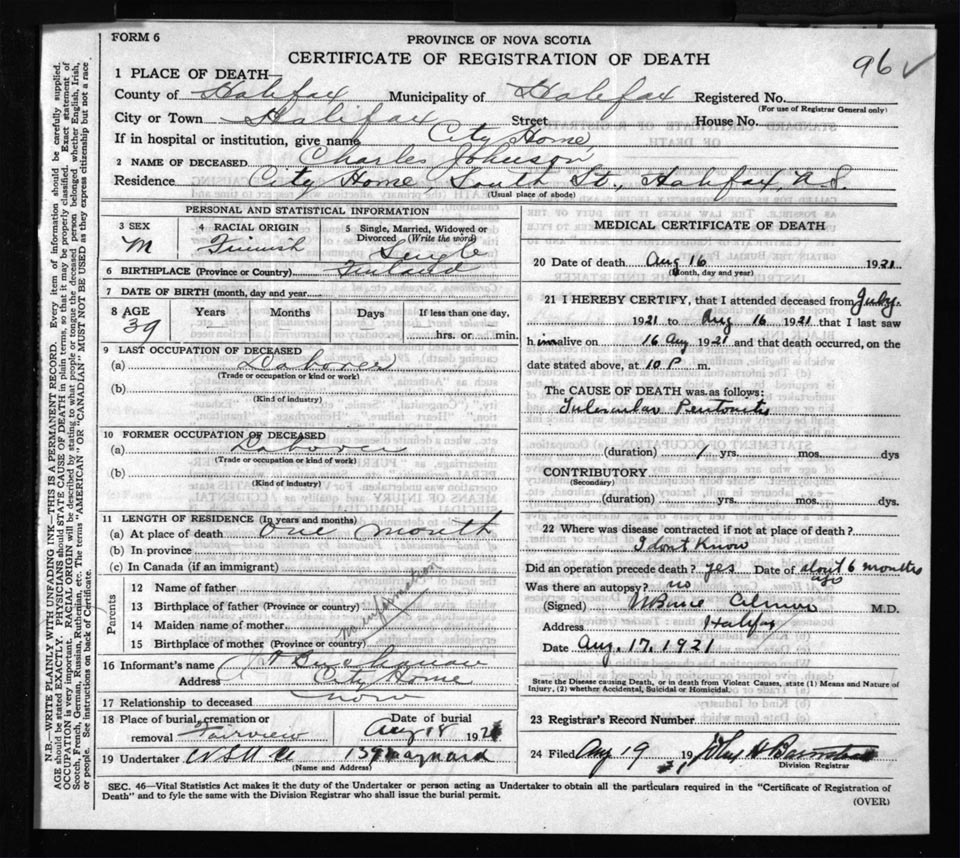 FORM 6
PROVINCE OF NOVA SCOTIA
CERTIFICATE OF REGISTRATION OF DEATH
96 ✓
1 PLACE OF DEATH—
County of Halifax Municipality of Halifax Registered No.
(For use of Registrar General only)
City or Town Halifax Street House No.
If in hospital or institution, give name City Home,
2 NAME OF DECEASED Charles Johnson
Residence City Home, South St., Halifax, N.S.
(Usual place of abode)
PERSONAL AND STATISTICAL INFORMATION
3 SEX M
4 RACIAL ORIGIN Finnish
5 Single, Married, Widowed or Divorced (Write the word) Single
6 BIRTHPLACE (Province or Country) Finland
7 DATE OF BIRTH (month, day and year
8 AGE Years Months Days If less than one day,
39 hrs. or min.
9 LAST OCCUPATION OF DECEASED
(a) Laborer
(Trade or occupation or kind or work)
(b)
(Kind of industry)
10 FORMER OCCUPATION OF DECEASED
(a) Laborer
(Trade or occupation or kind of work)
(b)
(Kind of industry)
11 LENGTH OF RESIDENCE (In years and months)
(a) At place of death one month
(b) In province
(c) In Canada (if an immigrant)
Parents
12 Name of father
13 Birthplace of father (Province or country)
14 Maiden name of mother
15 Birthplace of mother (Province or country)
no information
16 Informant's name
Address City Home
17 Relationship to deceased none
18 Place of burial, cremation or removal Fairview
Date of burial Aug 18 1921
19 Undertaker Maynard
(Name and Address)
MEDICAL CERTIFICATE OF DEATH
20 Date of death Aug 16 1921
(Month, day and year)
21 I HEREBY CERTIFY, that I attended deceased from July.
1921 to Aug 16 1921 that I last saw
him alive on 16 Aug 1921 and that death occurred, on the
date stated above, at 10 P m.
The CAUSE OF DEATH was as follows:
Tubercular Peritonitis
(duration) 1 yrs. mos. dys
CONTRIBUTORY
(Secondary)
(duration) yrs. mos. dys.
22 Where was disease contracted if not at place of death?
I dont know
Did an operation precede death? yes Date of about 6 months ago
Was there an autopsy? no
(Signed) M.D.
Address Halifax
Date Aug. 17, 1921
State the Disease causing Death, or in death from Violent Causes, state (1) Means and Nature of
Injury, (2) whether Accidental, Suicidal or Homicidal.
23 Registrar's Record Number
24 Filed Aug 19 19
Division Registrar
SEC. 46—Vital Statistics Act makes it the duty of the Undertaker or person acting as Undertaker to obtain all the particulars required in the "Certificate of Registration of
Death" and to fyle the same with the Division Registrar who shall issue the burial permit.
(OVER)
N.B.—WRITE PLAINLY WITH UNFADING INK—THIS IS A PERMANENT RECORD. Every item of information should be carefully supplied.
AGE should be stated EXACTLY. PHYSICIANS should STATE CAUSE OF DEATH in plain terms, so that it may be properly classified. Exact statement of
OCCUPATION is very important. RACIAL ORIGIN will be described by stating to what people or tongue the deceased person belonged whether English, Irish,
Scotch, French, German, Russian, Ruthenian, etc. The terms "AMERICAN" OR "CANADIAN" MUST NOT BE USED as they express citizenship but not a race
or people. See instructions on back of Certificate.